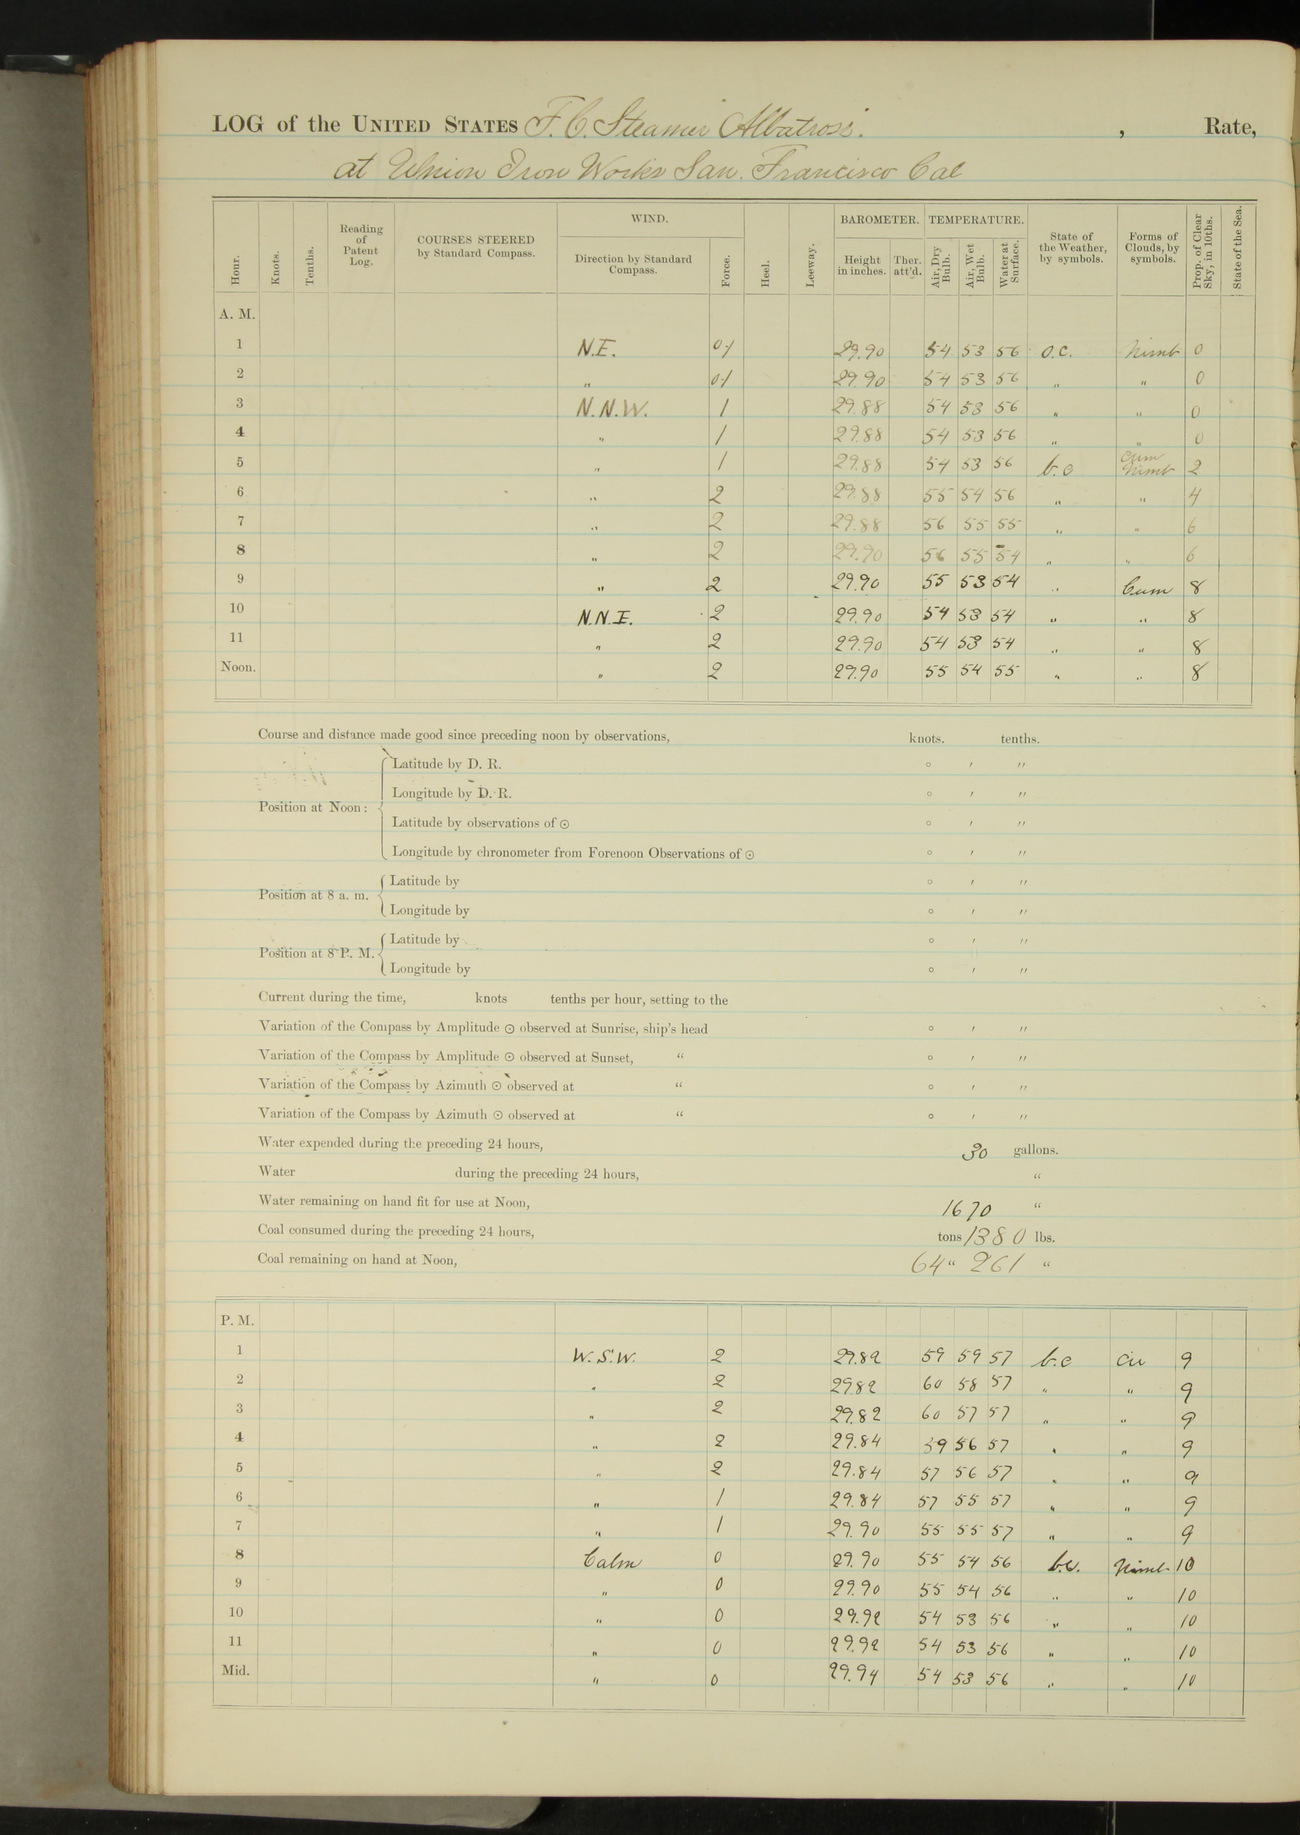 LOG of the UNITED STATES F. C. Steamer Albatross. , Rate,
at Union Iron Works San. Francisco Cal
Hour. Knots. Tenths. Reading of Patent Log. COURSES STEERED by Standard Compass. WIND. Direction by Standard Compass. Force. Heel. Leeway. BAROMETER. Height in inches. Ther. att'd. TEMPERATURE. Air, Dry Bulb. Air, Wet Bulb. Water at Surface. State of the Weather, by symbols. Forms of Clouds, by symbols. Prop. of Clear Sky, in 10ths. State of the Sea.
A. M.
1 N.E. 0-1 29.90 54 53 56 o.c. Nimb 0
2 " 0-1 29.90 54 53 56 " " 0
3 N.N.W. 1 29.88 54 53 56 " " 0
4 " 1 29.88 54 53 56 " " 0
5 " 1 29.88 54 53 56 b.c Cum Nimb 2
6 " 2 29.88 55 54 56 " " 4
7 " 2 29.88 56 55 55 " " 6
8 " 2 29.90 56 55 54 " " 6
9 " 2 29.90 55 53 54 " Cum 8
10 N.N.E. 2 29.90 54 53 54 " " 8
11 " 2 29.90 54 53 54 " " 8
Noon. " 2 29.90 55 54 55 " " 8
Course and distance made good since preceding noon by observations, knots. tenths.
Position at Noon: Latitude by D. R. ° ′ ″
Longitude by D. R. ° ′ ″
Latitude by observations of ☉ ° ′ ″
Longitude by chronometer from Forenoon Observations of ☉ ° ′ ″
Position at 8 a. m. Latitude by ° ′ ″
Longitude by ° ′ ″
Position at 8 P. M. Latitude by ° ′ ″
Longitude by ° ′ ″
Current during the time, knots tenths per hour, setting to the
Variation of the Compass by Amplitude ☉ observed at Sunrise, ship's head ° ′ ″
Variation of the Compass by Amplitude ☉ observed at Sunset, " ° ′ ″
Variation of the Compass by Azimuth ☉ observed at " ° ′ ″
Variation of the Compass by Azimuth ☉ observed at " ° ′ ″
Water expended during the preceding 24 hours, 30 gallons.
Water during the preceding 24 hours, "
Water remaining on hand fit for use at Noon, 1670 "
Coal consumed during the preceding 24 hours, tons 1380 lbs.
Coal remaining on hand at Noon, 64 " 261 "
P. M.
1 W.S.W. 2 29.82 59 59 57 b.c Cir 9
2 " 2 29.82 60 58 57 " " 9
3 " 2 29.82 60 57 57 " " 9
4 " 2 29.84 59 56 57 " " 9
5 " 2 29.84 57 56 57 " " 9
6 " 1 29.84 57 55 57 " " 9
7 " 1 29.90 55 55 57 " " 9
8 Calm 0 29.90 55 54 56 b.c. Nimb 10
9 " 0 29.90 55 54 56 " " 10
10 " 0 29.92 54 53 56 " " 10
11 " 0 29.92 54 53 56 " " 10
Mid. " 0 29.94 54 53 56 " " 10